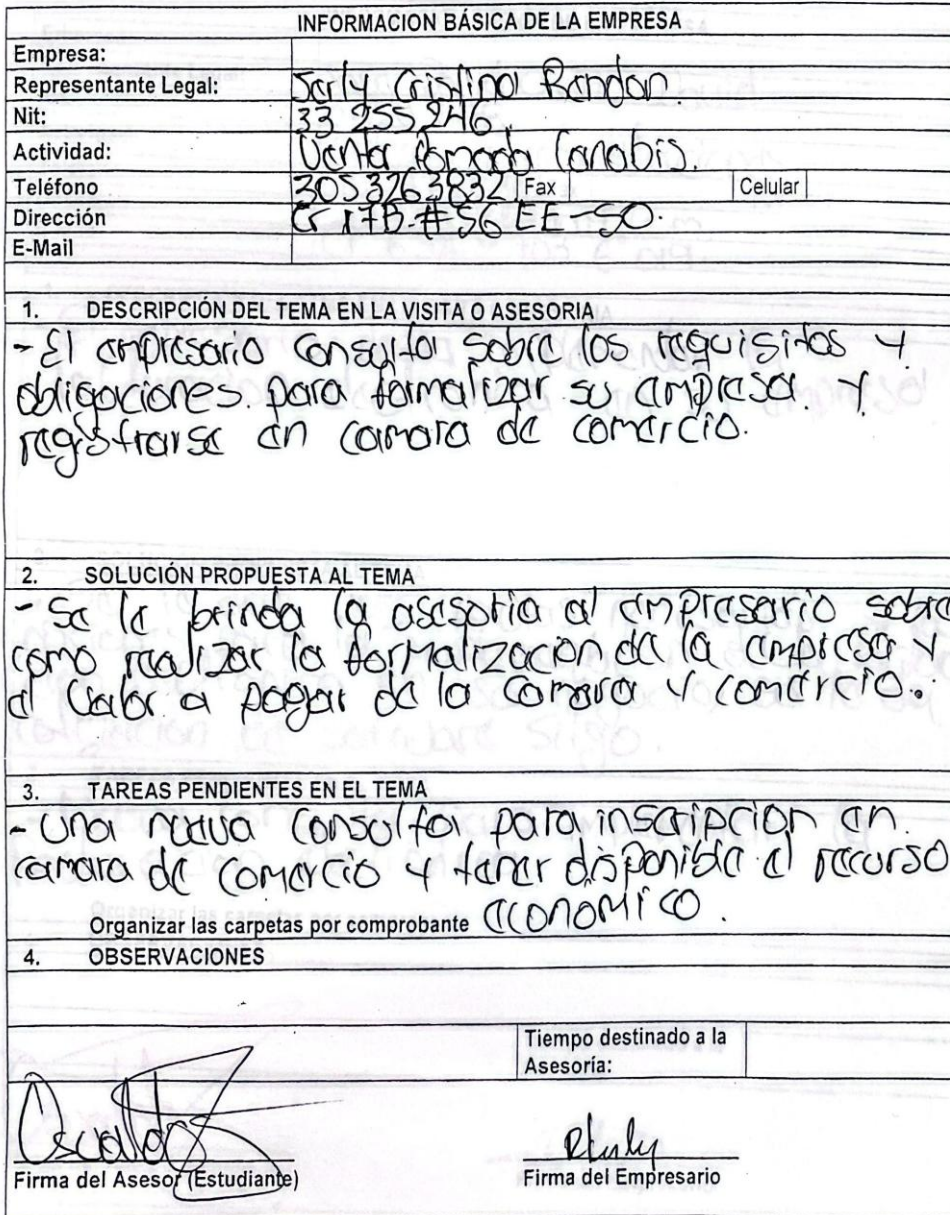 INFORMACION BÁSICA DE LA EMPRESA
Empresa:
Representante Legal: Sarly Cristina Rendon.
Nit: 33 255 246
Actividad: Venta Pomada Canabis.
Teléfono 3053263832 Fax Celular
Dirección Cr 17B-#56 EE-50.
E-Mail
1. DESCRIPCIÓN DEL TEMA EN LA VISITA O ASESORIA
- El empresario consulta sobre los requisitos y
obligaciones. para formalizar su empresa y
registrarse en camara de comercio.
2. SOLUCIÓN PROPUESTA AL TEMA
- Se le brinda la asesoria al empresario sobre
como realizar la formalización de la empresa y
el valor a pagar de la camara y comercio.
3. TAREAS PENDIENTES EN EL TEMA
- Una nueva consulta para inscripción en
camara de comercio y tener disponible el recurso
Organizar las carpetas por comprobante economico.
4. OBSERVACIONES
Tiempo destinado a la
Asesoría:
Firma del Asesor (Estudiante) Firma del Empresario